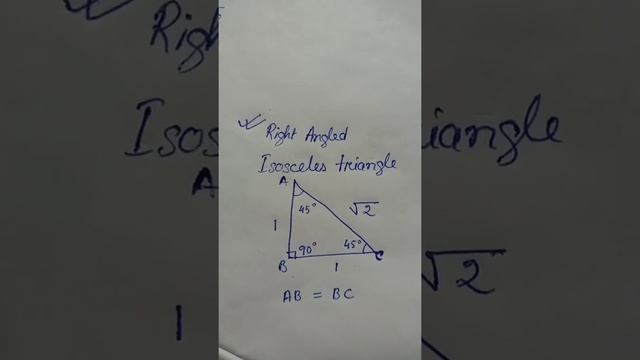 Right Angled
Isosceles triangle
A
45°
√2
1
90°
45°
C
B
1
AB = BC